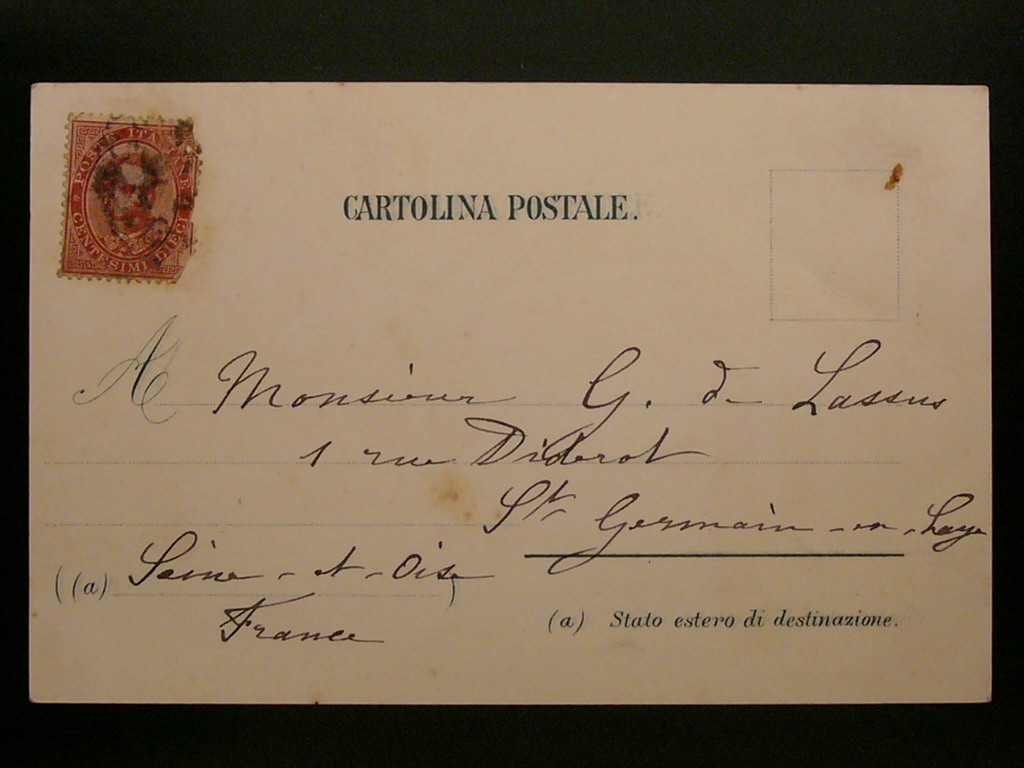 POSTE ITALIANE
CENTESIMI DIECI
CARTOLINA POSTALE.
A Monsieur G. de Lassus
1 rue Diderot
St Germain-en-Laye
((a) Seine-et-Oise)
France
(a) Stato estero di destinazione.